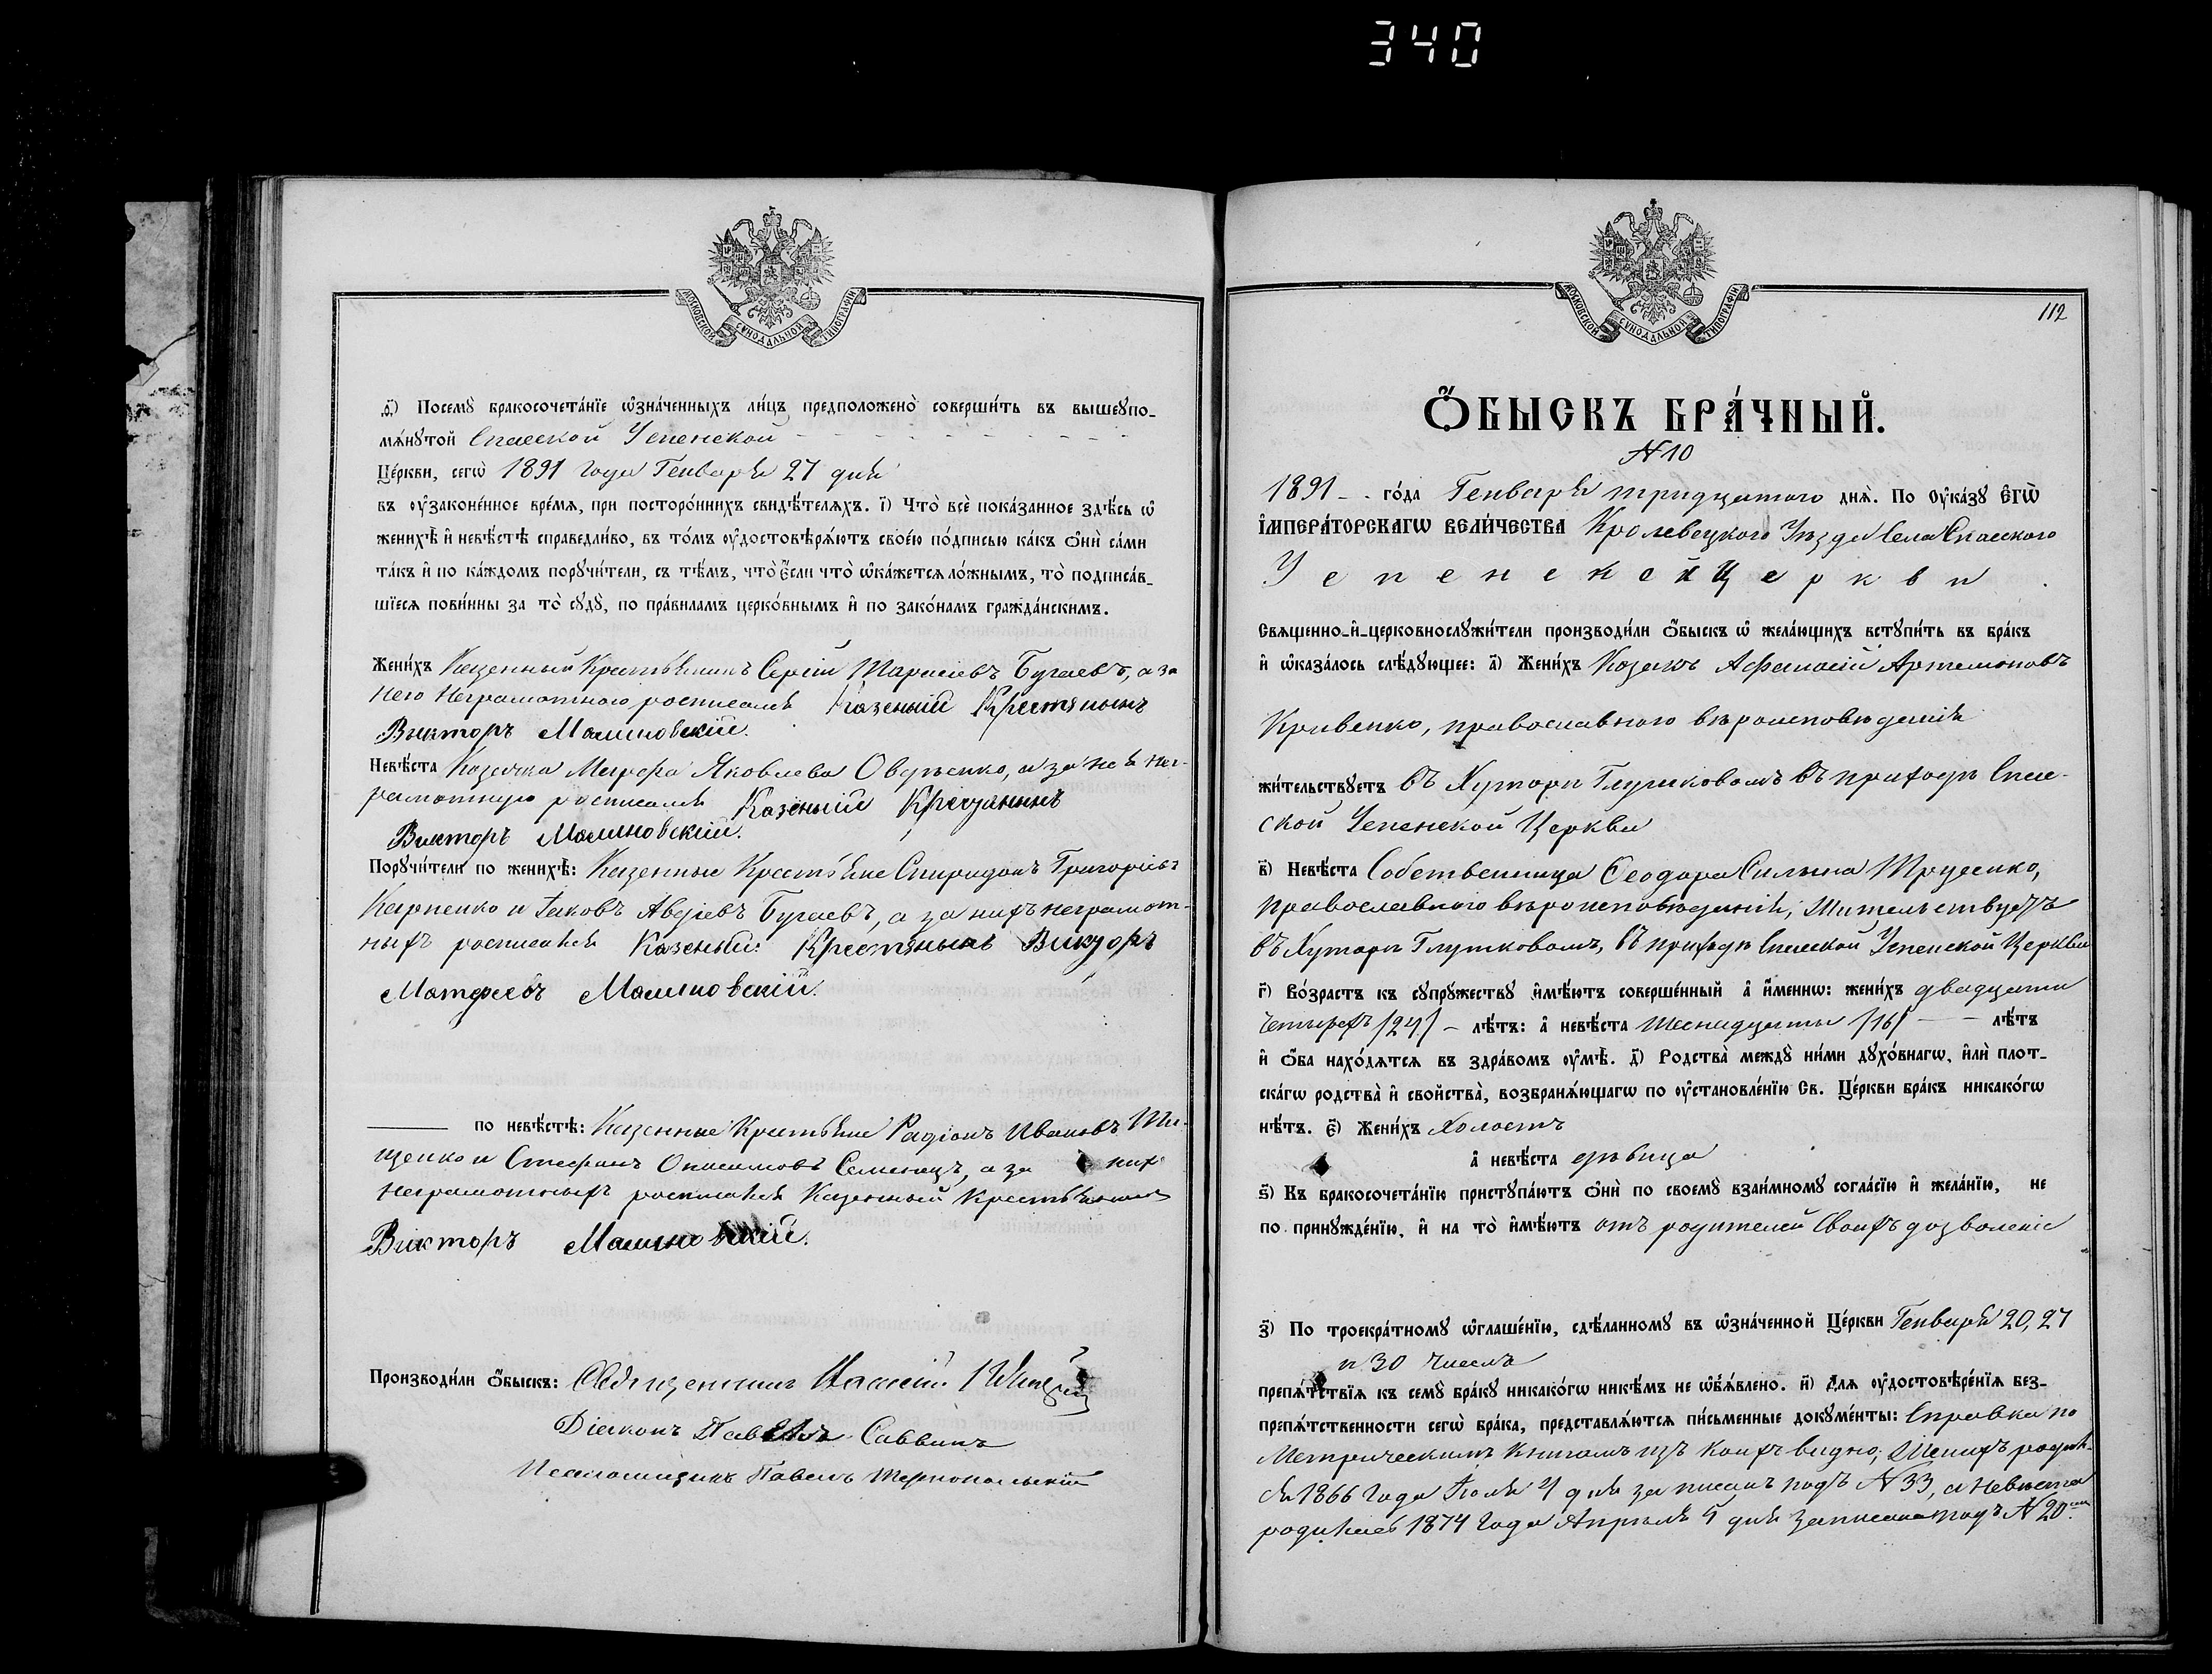 340
МОСКОВСКОЙ СѴНОДАЛЬНОЙ ТИПОГРАФІИ
ѳ҃) Посемꙋ̀ бракосочета́нїе ѡ҆зна́ченныхъ ли́цъ предположено̀ соверши́ть въ вышеꙋпо-
мѧ́нꙋтой Спасской Успенской
Це́ркви, сегѡ̀ 1891 года Генваря 27 дня
въ ᲂу҆законе́нное вре́мѧ, при посторо́ннихъ свидѣ́телѧхъ. і҃) Что̀ всѐ пока́занное здѣ́сь ѡ҆
женихѣ̀ и҆ невѣ́стѣ справедли́во, въ то́мъ ᲂу҆достовѣрѧ́ютъ свое́ю по́дписью ка́къ ѻ҆нѝ са́ми
та́къ и҆ по ка́ждомъ порꙋчи́тели, съ тѣ́мъ, что̀ є҆́сли что̀ ѡ҆ка́жетсѧ ло́жнымъ, то̀ подписа́в-
шїесѧ пови́нны за то̀ сꙋдꙋ̀, по пра́виламъ церко́внымъ и҆ по зако́намъ гражда́нскимъ.
Жени́хъ Казенный Крестьянинъ Сергій Тарасіевъ Бугаевъ, а за
него неграмотного росписался Казеный Крестянинъ
Викторъ Малиновскій.
Невѣ́ста Козачка Марфа Яковлева Оверченко, а за нея нег-
рамотную росписался Казеный Кресянинъ
Викторъ Малиновскій.
Порꙋчи́тели по женихѣ̀: Казенные Крестьяне Спиридонъ Григоріевъ
Карпенко и Іаковъ Авдіевъ Бугаевъ, а за нихъ неграмот-
ныхъ росписался Казеный Крестянинъ Викторъ
Матфеевъ Малиновскій.
по невѣ́стѣ: Казенные Крестьяне Радіонъ Ивановъ Ти-
щенко и Стефанъ Онисимовъ Семенецъ, а за нихъ
неграмотныхъ росписался Казенный Крестьянинъ
Викторъ Малиновскій.
Производи́ли ѻ҆́быскъ: Священникъ
Діаконъ Павелъ Саввинъ
Псаломщикъ Павелъ Тернопольскій
МОСКОВСКОЙ СѴНОДАЛЬНОЙ ТИПОГРАФІИ
112
Ѻ҆́БЫСКЪ БРА́ЧНЫЙ.
N 10
1891 го́да Генваря тридцатого днѧ̀. По ᲂу҆ка́зꙋ Є҆ГѠ̀
І҆МПЕРА́ТОРСКАГѠ ВЕЛИ́ЧЕСТВА Кролевецкого Уѣзда Села Спасского
Успенской Церкви
Свѧщенно-и҆-церковнослꙋжи́тели производи́ли ѻ҆́быскъ ѡ҆ жела́ющихъ встꙋпи́ть въ бра́къ
и҆ ѡ҆каза́лось слѣ́дꙋющее: а҃) Жени́хъ Козакъ Афанасій Артемоновъ
Кривенко, православного вѣроисповѣданія
жи́тельствꙋетъ въ Хуторѣ Глушковомъ въ приходѣ Спас-
ской Успенской Церкви
в҃) Невѣ́ста Собственница Ѳеодора Силина Труценко,
православного вѣроисповѣданія, жительствуетъ
въ Хуторѣ Глушковомъ, въ приходѣ Спасской Успенской Церкви
г҃) Во́зрастъ къ сꙋпрꙋ́жествꙋ и҆мѣ́ютъ соверше́нный а҆ и҆́менно: жени́хъ двадцати
четырехъ /24/ лѣ́тъ: а҆ невѣ́ста шестнадцати /16/ лѣ́тъ
и҆ ѻ҆́ба нахо́дѧтсѧ въ здра́вомъ ᲂу҆мѣ̀. д҃) Родства̀ междꙋ̀ ни́ми дꙋхо́внагѡ, и҆лѝ плот-
ска́гѡ родства̀ и҆ свойства̀, возбранѧ́ющагѡ по ᲂу҆становле́нїю Св. Це́ркви бра́къ никако́гѡ
нѣ́тъ. є҃) Жени́хъ Холостъ
а҆ невѣ́ста дѣвица
ѕ҃) Къ бракосочета́нїю пристꙋпа́ютъ ѻ҆нѝ по своемꙋ̀ взаи́мномꙋ согла́сїю и҆ жела́нїю, не
по принꙋжде́нїю, и҆ на то̀ и҆мѣ́ютъ отъ родителей своихъ дозволеніе
з҃) По троекра́тномꙋ ѡ҆глаше́нїю, сдѣ́ланномꙋ въ ѡ҆зна́ченной Це́ркви Генваря 20, 27
и 30 чиселъ
препѧ́тствїѧ къ семꙋ̀ бра́кꙋ никако́гѡ никѣ́мъ не ѡ҆б̾ѧ́влено. и҃) Длѧ ᲂу҆достовѣре́нїѧ без-
препѧ́тственности сегѡ̀ бра́ка, представлѧ́ютсѧ пи́сьменные докꙋме́нты: Справка по
Метрическимъ Книгамъ изъ коихъ видно, Женихъ родил-
ся 1866 года Іюля 4 дня записанъ подъ N 33, а Невѣста
родилась 1874 года Апрѣля 5 дня записана подъ N 20.